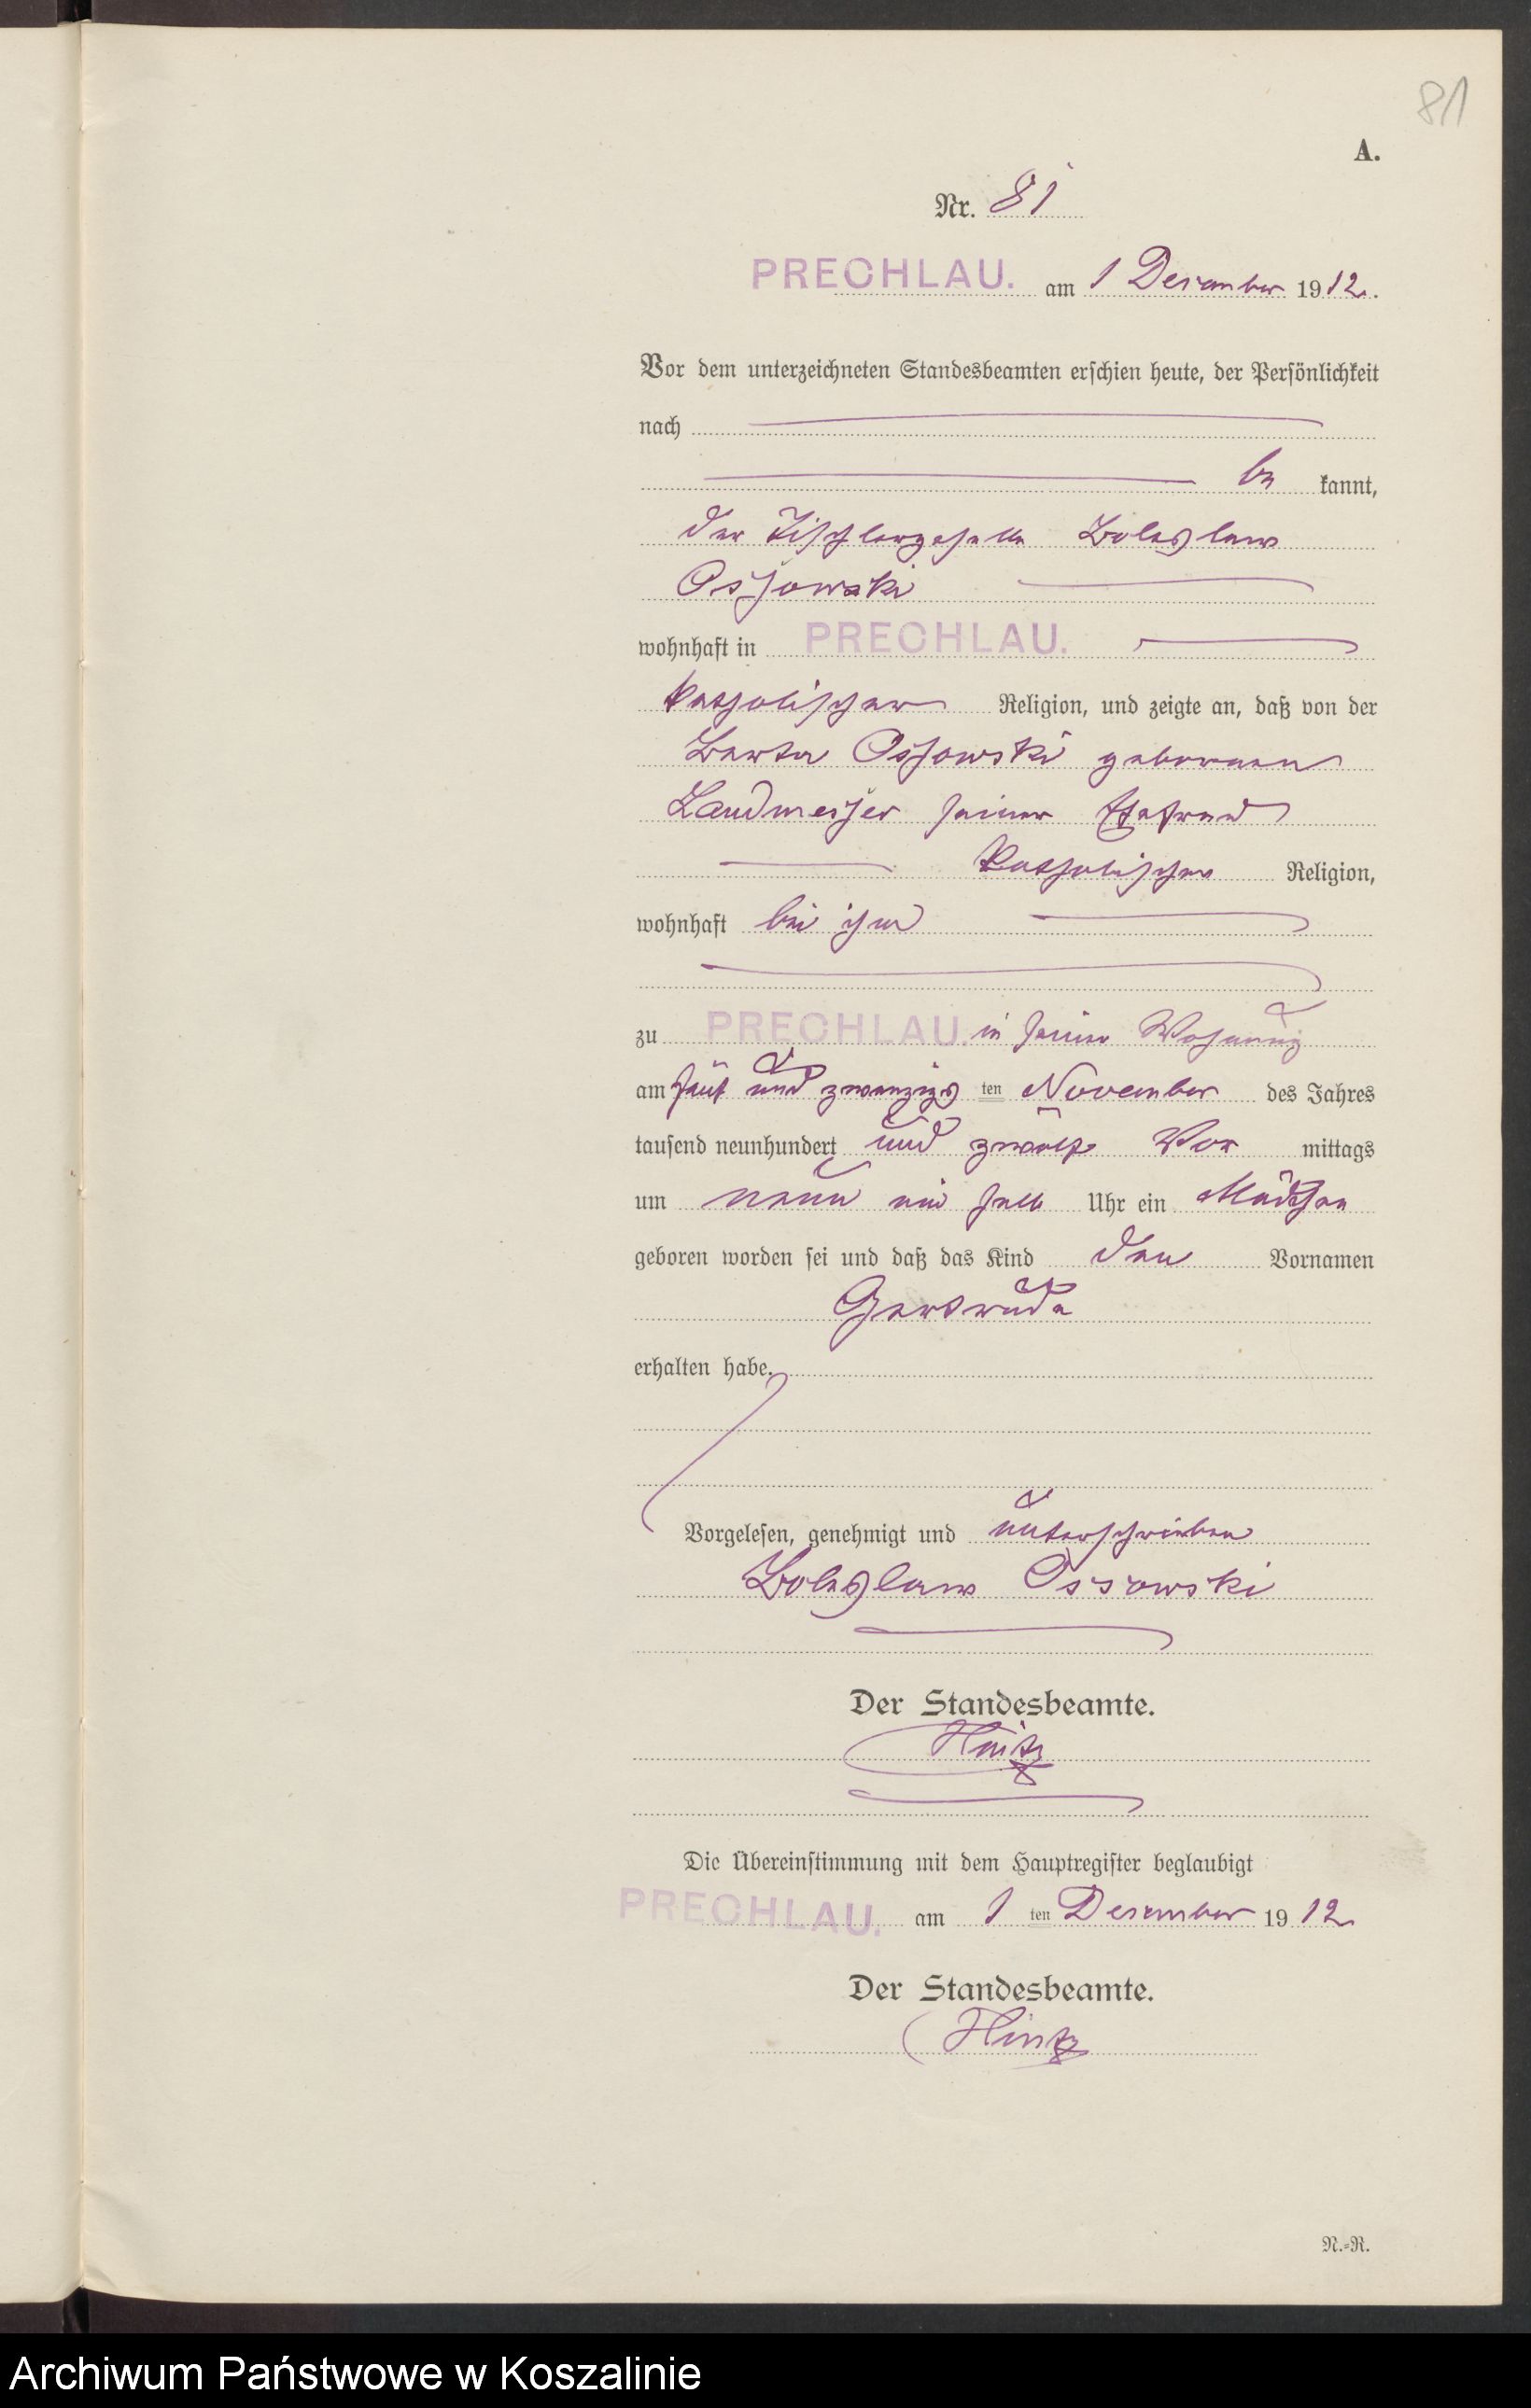 81
A.
Nr. 81
PRECHLAU. am 1 Dezember 1912.
Vor dem unterzeichneten Standesbeamten erschien heute, der Persönlichkeit
nach
be kannt,
der Tischlergeselle Boleslaw
Ossowski
wohnhaft in PRECHLAU.
katholischer Religion, und zeigte an, daß von der
Berta Ossowski geborenen
Landmesser seiner Ehefrau
katholischer Religion,
wohnhaft bei ihm
zu PRECHLAU. in seiner Wohnung
am fünf und zwanzigs ten November des Jahres
tausend neunhundert und zwölf Vor mittags
um neun ein halb Uhr ein Mädchen
geboren worden sei und daß das Kind den Vornamen
Gertruda
erhalten habe.
Vorgelesen, genehmigt und unterschrieben
Boleslaw Ossowski
Der Standesbeamte.
Hintz
Die Übereinstimmung mit dem Hauptregister beglaubigt
PRECHLAU. am 1 ten Dezember 1912
Der Standesbeamte.
Hintz
N.-R.
Archiwum Państwowe w Koszalinie